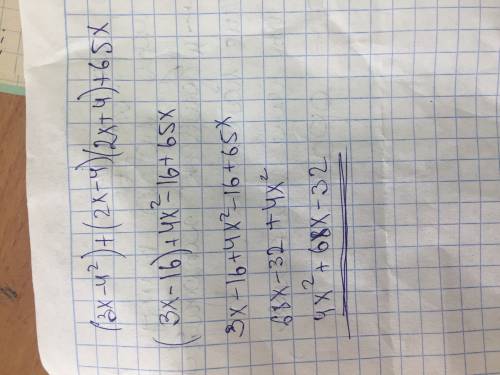 (3x-4²)+(2x-4)(2x+4)+65x
(3x-16)+4x²-16+65x
3x-16+4x²-16+65x
68x-32+4x²
4x²+68x-32